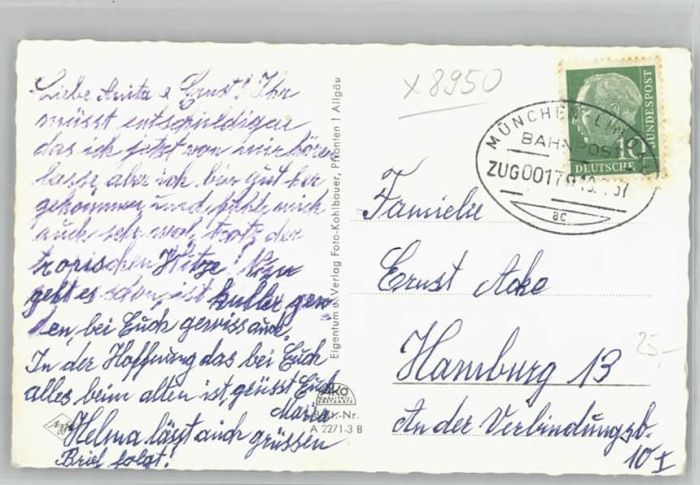 Liebe Anita & Ernst! Ihr
müsst entschuldigen
das ich jetzt von mir hören
lasse, aber ich bin gut her
gekommen und fühle mich
auch sehr wol, trotz der
tropischen Hitze! Nun
geht es schon, ist kuller gewor
den, bei Euch gewiss auch.
In der Hoffnung das bei Euch
alles beim alten ist, grüsst Euch
Maria
Helma lässt auch grüssen
Brief folgt!
Eigentum u. Verlag Foto-Kohlbauer, Pfronten 1 Allgäu
AKO
Best.-Nr.
A 2271-3 B
x8950
MÜNCHEN-LIN
BAHNPOST
ZUG00179
ac
10
DEUTSCHE
BUNDESPOST
Familie
Ernst Acke
Hamburg 13
An der Verbindungsb.
10 I
25,-